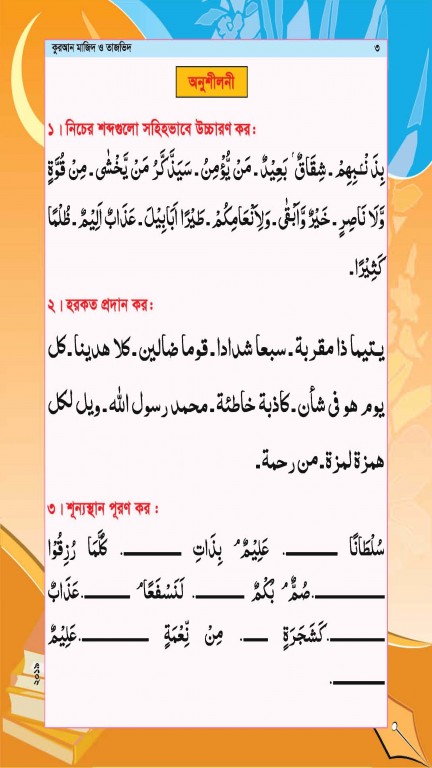 কুরআন মাজিদ ও তাজভিদ ৩
অনুশীলনী
১। নিচের শব্দগুলো সহিহভাবে উচ্চারণ কর:
بِذَنْۢبِهِمْ ـ شِقَاقٍۢ بَعِيْدٌ ـ مَنْ يُّؤْمِنُ ـ سَيَذَّكَّرُ مَنْ يَّخْشٰى ـ مِنْ قُوَّةٍ
وَّلَا نَاصِرٍ ـ خَيْرٌ وَّاَبْقٰى ـ وَلِاَنْعَامِكُمْ ـ طَيْرًا اَبَابِيْلَ ـ عَذَابٌ اَلِيْمٌ ـ ظُلْمًا
كَثِيْرًا ـ
২। হরকত প্রদান কর:
يتيما ذا مقربة ـ سبعا شدادا ـ قوما ضالين ـ كلا هدينا ـ كل
يوم هو فى شأن ـ كاذبة خاطئة ـ محمد رسول الله ـ ويل لكل
همزة لمزة ـ من رحمة ـ
৩। শূন্যস্থান পূরণ কর :
سُلْطَانًا ـــــ عَلِيْمٌۢ بِذَاتِ ـــــ. كُلَّمَا رُزِقُوْا
ـــــ. صُمٌّۢ بُكْمٌ ـــــ. لَنَسْفَعًاۢ ـــــ. عَذَابٌ
ـــــ. كَشَجَرَةٍ ـــــ. مِنْ نِّعْمَةٍ ـــــ. عَلِيْمٌ
ـــــ.
২০১৯